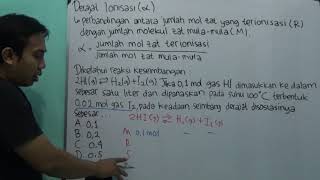 Derajat Ionisasi (α)
↳ perbandingan antara jumlah mol zat yang terionisasi (R)
dengan jumlah molekul zat mula-mula (M).
α = jumlah mol zat terionisasi
jumlah mol zat mula-mula
Diketahui reaksi kesetimbangan
2HI(g) ⇌ H₂(g) + I₂(g). Jika 0,1 mol gas HI dimasukkan ke dalam
bejana satu liter dan dipanaskan pada suhu 100°C terbentuk
0,02 mol gas I₂, pada keadaan seimbang derajat disosiasinya
sebesar...
2HI(g) ⇌ H₂(g) + I₂(g)
A. 0,1
M 0,1 mol - -
B. 0,2
R
C. 0,4
D. 0,5